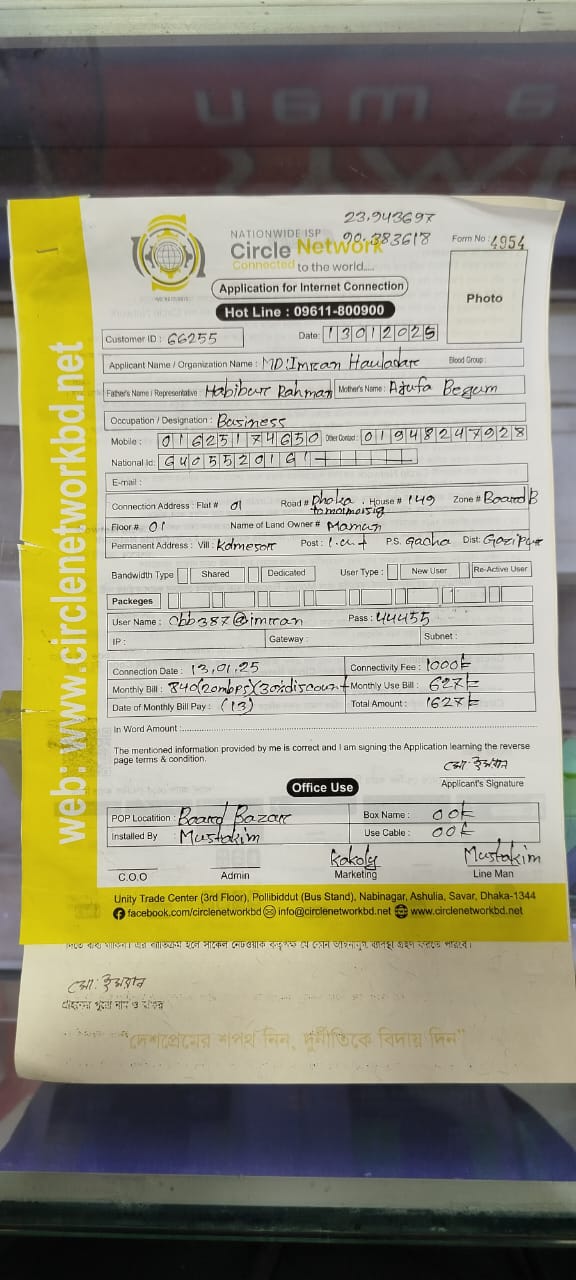 23.943697
90.383618
NATIONWIDE ISP
Circle Network
Connected to the world....
Form No : 4954
Application for Internet Connection
Hot Line : 09611-800900
Photo
Customer ID : 66255 Date: 13012025
Applicant Name / Organization Name : MD: Imran Hauladar Blood Group :
Father's Name / Representative Habibur Rahman Mother's Name : Ajufa Begum
Occupation / Designation : Business
Mobile : 01625174650 Other Contact : 01948247928
National Id:
E-mail :
Connection Address : Flat # 01 Road # Dhaka House # 149 Zone # Board B
Floor # 01 Name of Land Owner # Mamun
Permanent Address : Vill : Post : P.S. Gacha Dist: Gazipur
Bandwidth Type Shared Dedicated User Type : New User Re-Active User
Packeges
User Name : cbb387@imran Pass : 44455
IP : Gateway : Subnet :
Connection Date : 13,01,25 Connectivity Fee : 1000৳
Monthly Bill : 840(20mbps)(30%discount Monthly Use Bill : 627৳
Date of Monthly Bill Pay : (13) Total Amount : 1627৳
In Word Amount :
The mentioned information provided by me is correct and I am signing the Application learning the reverse
page terms & condition.
মো: ইমরান
Applicant's Signature
Office Use
POP Locatition : Board Bazar Box Name : 00৳
Installed By : Mustakim Use Cable : 00৳
Kakoly Mustakim
C.O.O Admin Marketing Line Man
Unity Trade Center (3rd Floor), Pollibiddut (Bus Stand), Nabinagar, Ashulia, Savar, Dhaka-1344
facebook.com/circlenetworkbd info@circlenetworkbd.net www.circlenetworkbd.net
web: www.circlenetworkbd.net
মো: ইমরান
"দেশপ্রেমের শপথ নিন, দুর্নীতিকে বিদায় দিন"